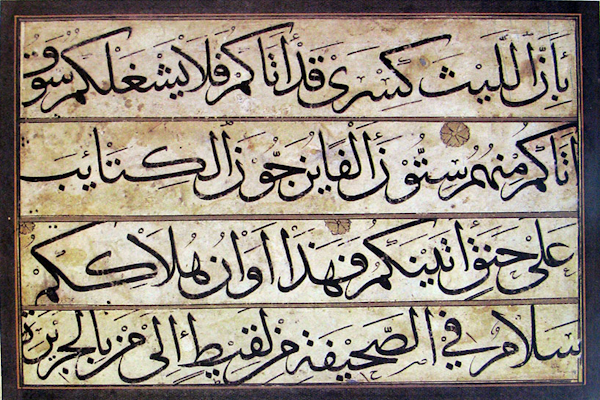 بأنّ اللّيث كسرى قد أتاكم فلا يشغلكم سوق
أتاكم منهم ستّون ألفا يزجّون الكتائب
على حنق أتينكم فهذا أوان هلاككم
سلام في الصّحيفة من لقيط إلى من بالجزيرة